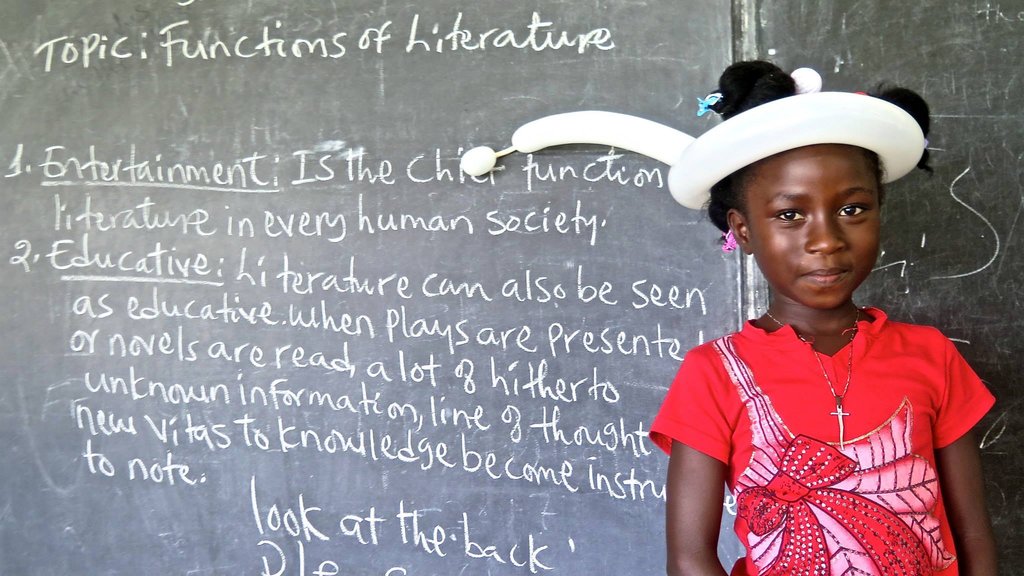 Topic: Functions of Literature
1. Entertainment: Is the chief function
literature in every human society.
2. Educative: Literature can also be seen
as educative. When plays are presente
or novels are read, a lot of hitherto
unknown information, line of thought
new vitas to knowledge become instru
to note.
look at the back